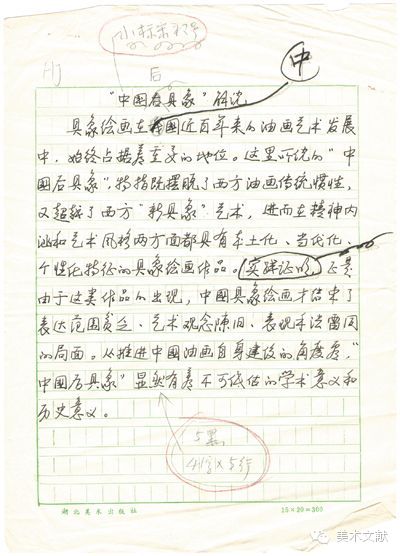 小标宋2号
中
后
“中国后具象”解说
具象绘画在我国近百年来的油画艺术发展
中，始终占据着至要的地位。这里所说的“中
国后具象”，特指既摆脱了西方油画传统惯性，
又超越了西方“新具象”艺术，进而在精神内
涵和艺术风格两方面都具有本土化、当代化、
个性化特征的具象绘画作品。实践证明，正是
由于这类作品的出现，中国具象绘画才结束了
表达范围贫乏、艺术观念陈旧、表现手法雷同
的局面。从推进中国油画自身建设的角度看，“
中国后具象”显然有着不可低估的学术意义和
历史意义。
5黑
41字×5行
湖北美术出版社 15×20=300
美术文献